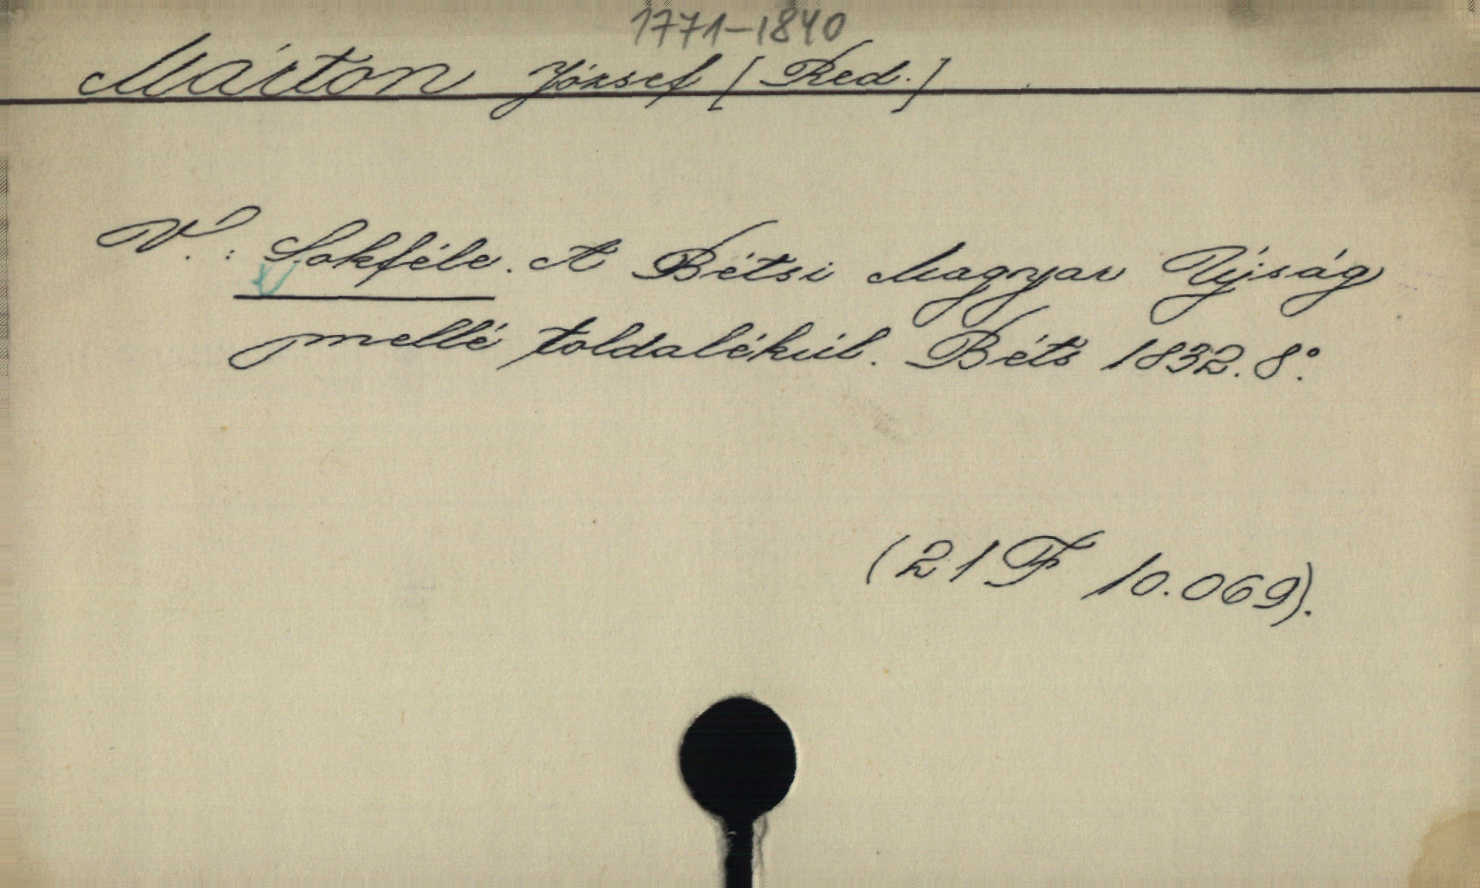 1771-1840
Márton József [Red.]
V.: Sokféle. A Bétsi Magyar Újság
mellé toldalékúl. Béts 1832. 8°.
(21 F 10.069).